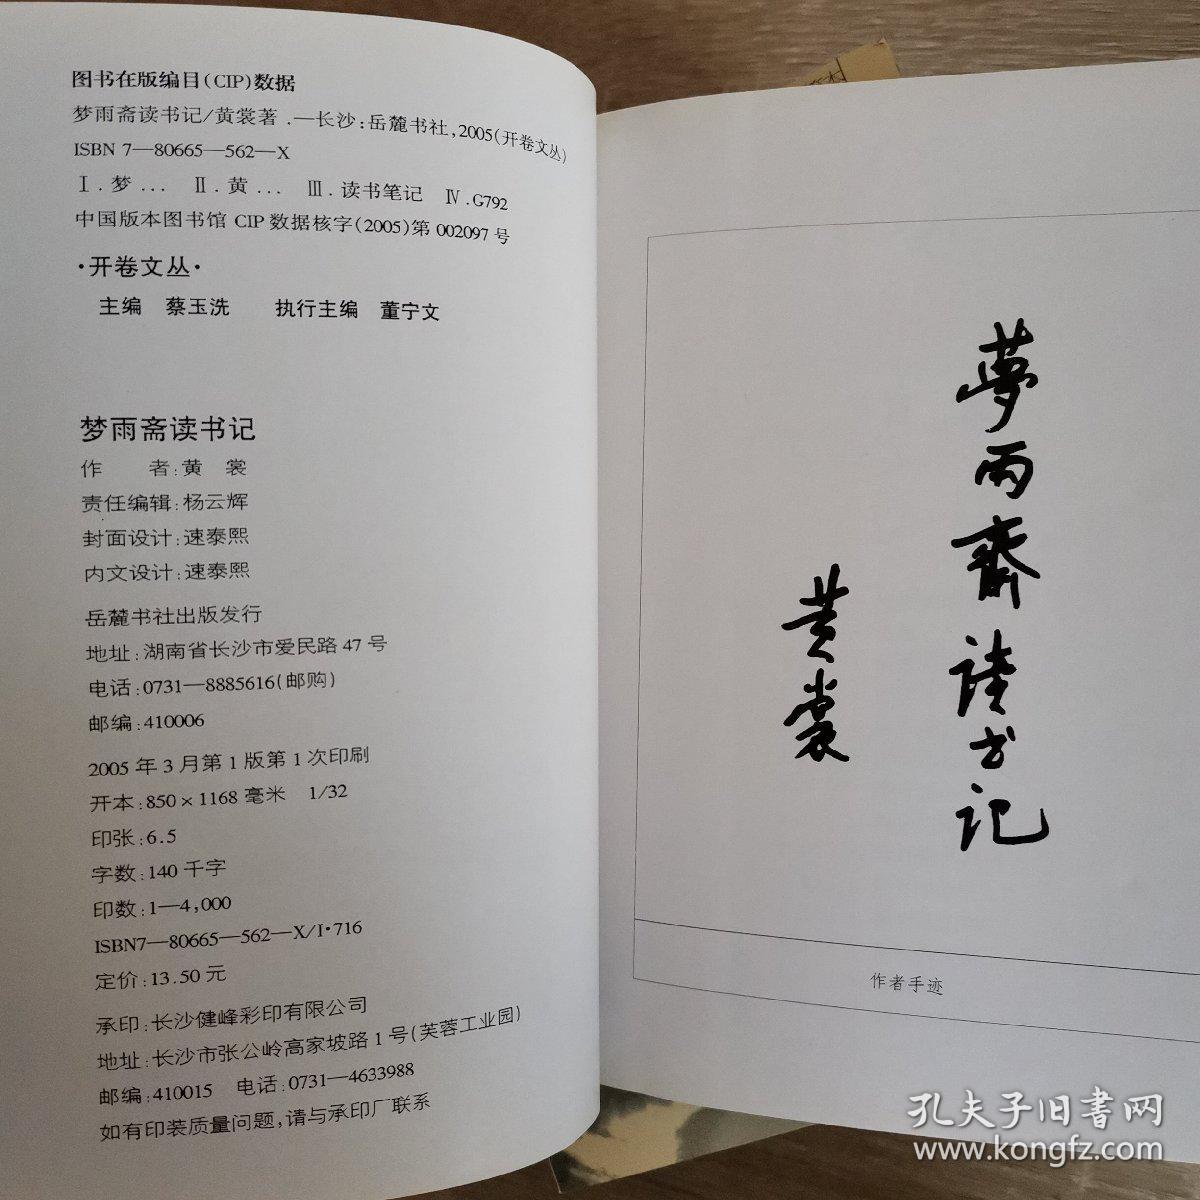 图书在版编目(CIP)数据
梦雨斋读书记/黄裳著.—长沙:岳麓书社,2005(开卷文丛)
ISBN 7—80665—562—X
Ⅰ.梦... Ⅱ.黄... Ⅲ.读书笔记 Ⅳ.G792
中国版本图书馆 CIP 数据核字(2005)第 002097 号
·开卷文丛·
主编 蔡玉洗 执行主编 董宁文
梦雨斋读书记
作 者:黄 裳
责任编辑:杨云辉
封面设计:速泰熙
内文设计:速泰熙
岳麓书社出版发行
地址:湖南省长沙市爱民路 47 号
电话:0731—8885616(邮购)
邮编:410006
2005 年 3 月第 1 版第 1 次印刷
开本:850×1168 毫米 1/32
印张:6.5
字数:140 千字
印数:1—4,000
ISBN7—80665—562—X/I·716
定价:13.50 元
承印:长沙健峰彩印有限公司
地址:长沙市张公岭高家坡路 1 号(芙蓉工业园)
邮编:410015 电话:0731—4633988
如有印装质量问题,请与承印厂联系
夢雨齋读书记
黄裳
作者手迹
孔夫子旧書网
www.kongfz.com